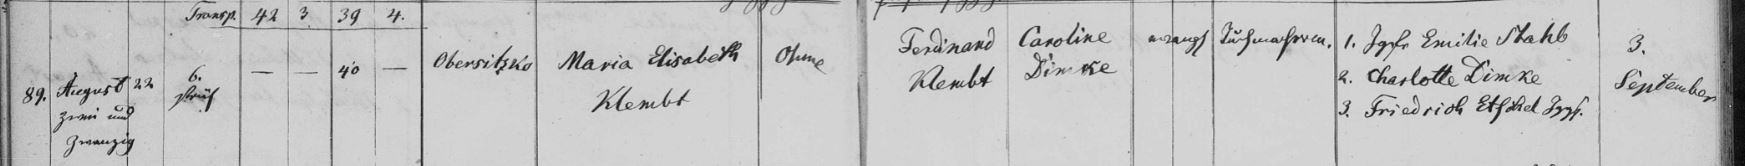 Transp. 42 3. 39 4.
89. August 22 6. — — 40 — Obersitzko Maria Elisabeth Ohme Ferdinand Caroline evangel Tuchmacher 1. Jgfr Emilie Stahb 3.
zwei und früh Klembt Klembt Dimke 2. Charlotte Dimke September
zwanzig 3. Friedrich Jggs.